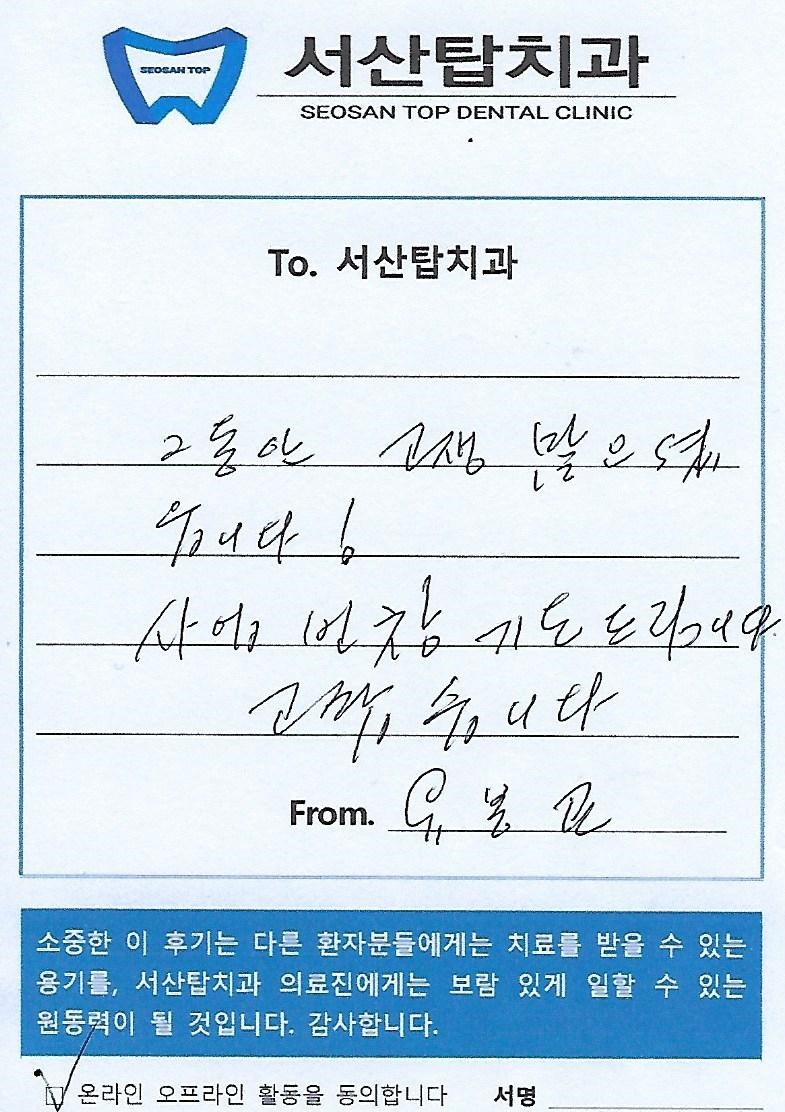 SEOSAN TOP
서산탑치과
SEOSAN TOP DENTAL CLINIC
To. 서산탑치과
그동안 고생 많으셨
습니다!
사업 번창 기도드립니다
고맙습니다
From. 유봉
소중한 이 후기는 다른 환자분들에게는 치료를 받을 수 있는
용기를, 서산탑치과 의료진에게는 보람 있게 일할 수 있는
원동력이 될 것입니다. 감사합니다.
온라인 오프라인 활동을 동의합니다 서명